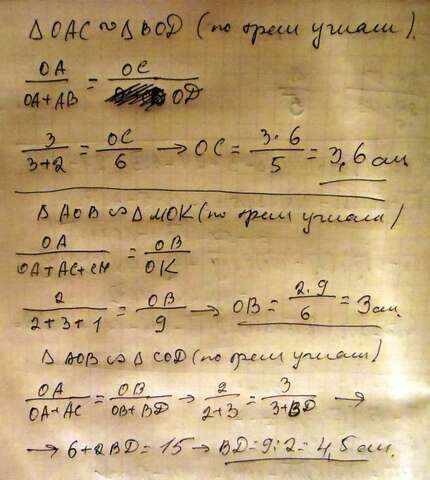 Δ OAC ∾ Δ BOD (по трем углам).
OA / OA+AB = OC / OD
3 / 3+2 = OC / 6 → OC = 3·6 / 5 = 3,6 см
Δ AOB ∾ Δ MOK (по трем углам)
OA / OA+AC+CM = OB / OK
2 / 2+3+1 = OB / 9 → OB = 2·9 / 6 = 3 см.
Δ AOB ∾ Δ COD (по трем углам)
OA / OA+AC = OB / OB+BD → 2 / 2+3 = 3 / 3+BD →
→ 6+2BD = 15 → BD = 9:2 = 4,5 см.